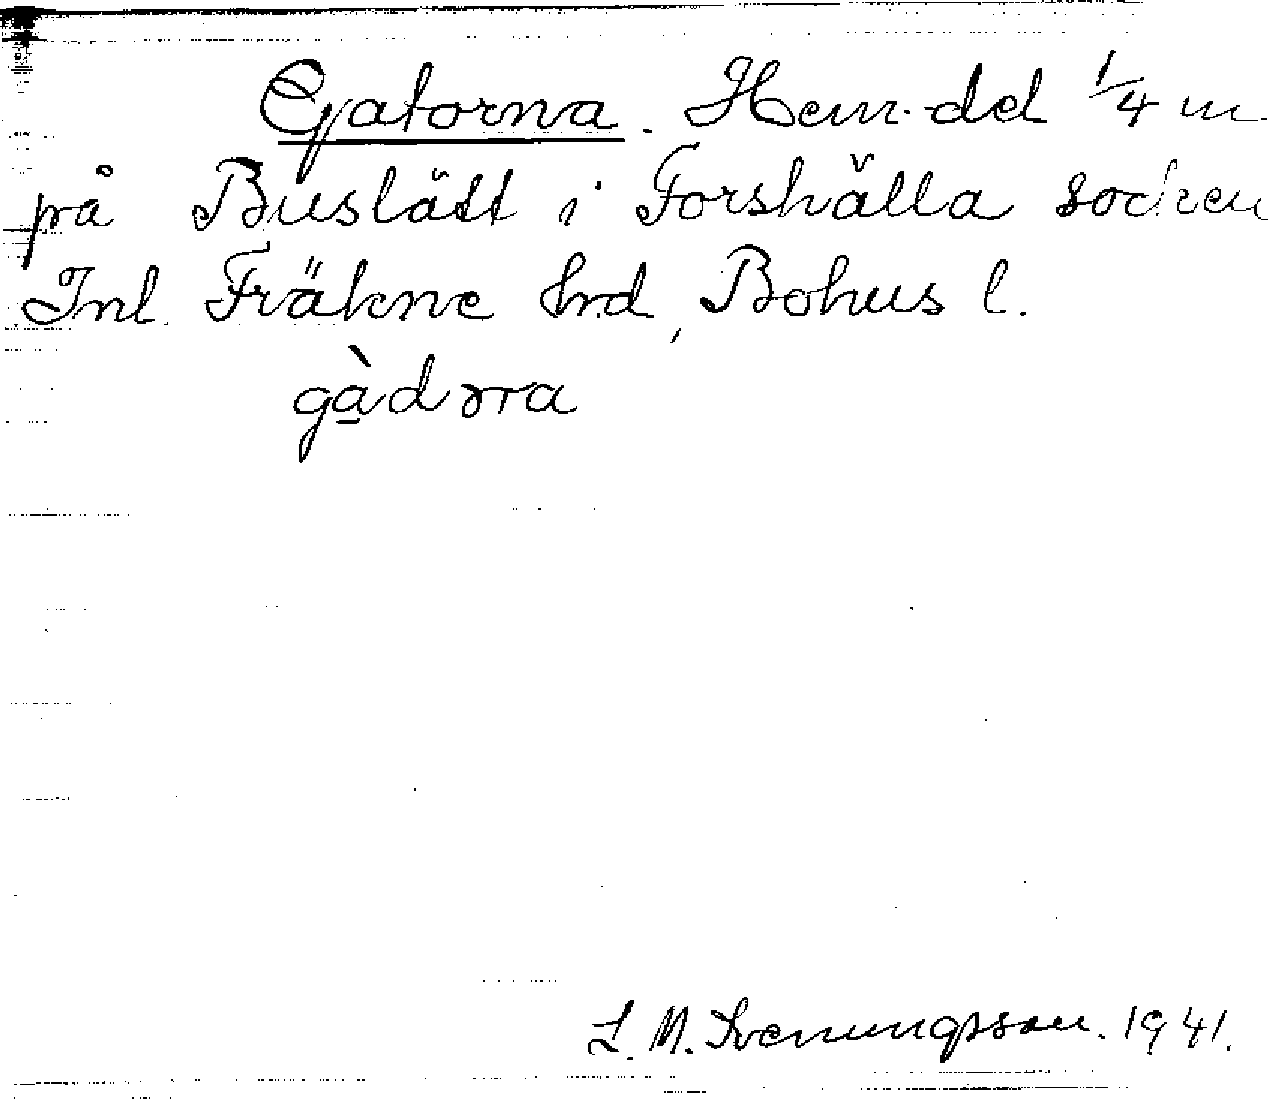 Gatorna. Hem.del 1/4 m
på Buslätt i Forshälla socken
Inl. Fräkne hrd, Bohus l.
gàdɔrra
L. M. Svenungsson. 1941.